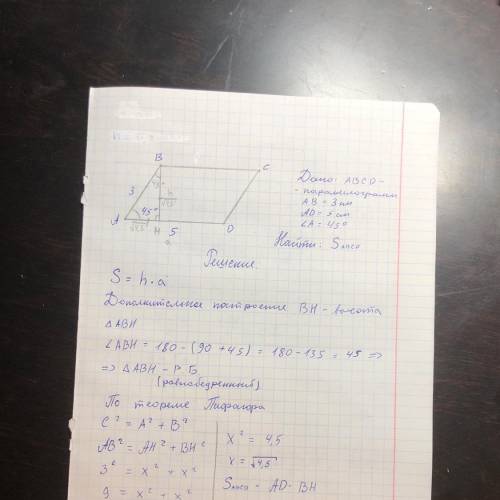 B
C
3
45°
h
√4,5
A
45°
√4,5
H
5
D
a
Дано: ABCD -
- параллелограмм
AB = 3 см
AD = 5 см
∠A = 45°
Найти: S
Решение.
S = h · a
Дополнительное построение BH - высота
△ABH
∠ABH = 180 - (90 + 45) = 180 - 135 = 45 =>
=> △ABH - Р.Б
(равнобедренный)
По теореме Пифагора
C² = A² + B²
AB² = AH² + BH²
3² = x² + x²
9 = x² + x²
x² = 4,5
x = √4,5
S = AD · BH